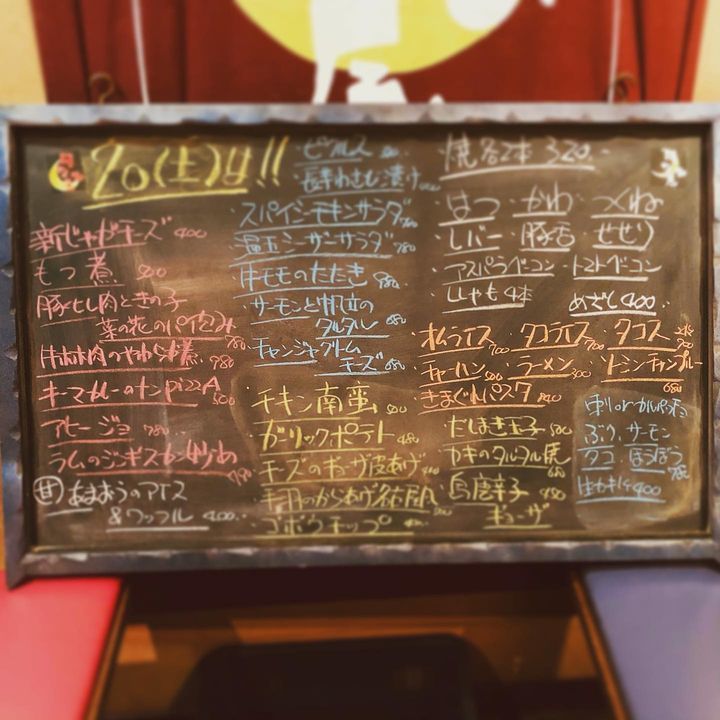 20(土)は!!
新じゃがチーズ 400
もつ煮
豚ヒレ肉ときの子
菜の花のパイ包み
牛ホホ肉のやわらか煮 980
キーマカレーのナンPIZZA 500
アヒージョ 780
ラムのジンギスカン炒め
甘 あまおうのアイス
&ワッフル 400
・ピクルス
・長芋わさび漬け
・スパイシーチキンサラダ 780
・温玉シーザーサラダ 780
・牛モモのたたき 980
・サーモンと帆立の
タルタル 680
・チャンジャクリーム
チーズ 680
・チキン南蛮
・ガーリックポテト 480
・チーズのギョーザ皮あげ
・手羽のからあげ名古屋風
・ゴボウチップ
・焼各2本 320
・はつ ・かわ ・つくね
・レバー ・豚舌 ・せせり
・アスパラベーコン ・トマトベーコン
・ししゃも4本 めざし400
・オムライス 700 ・タコライス 700 ・タコス
・チャーハン 500 ・ラーメン 300 ・ソーミンチャンプルー 680
・きまぐれパスタ
・だしまき玉子 580
・カキのタルタル焼 680
・鳥唐辛子 450
ギョーザ
刺しorカルパッチョ
ぶり、サーモン
タコ ほうぼう 780
生カキ1ケ400